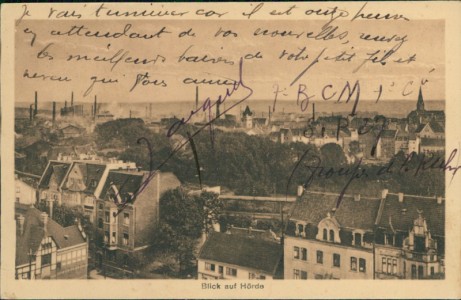 Je vais terminer car il est onze heures
en attendant de vos nouvelles, recevez
les meilleurs baisers de votre petit fils et
neveu qui vous aime
7 BCM 1e Cie
S.P. 27
Troupes d
Blick auf Hörde